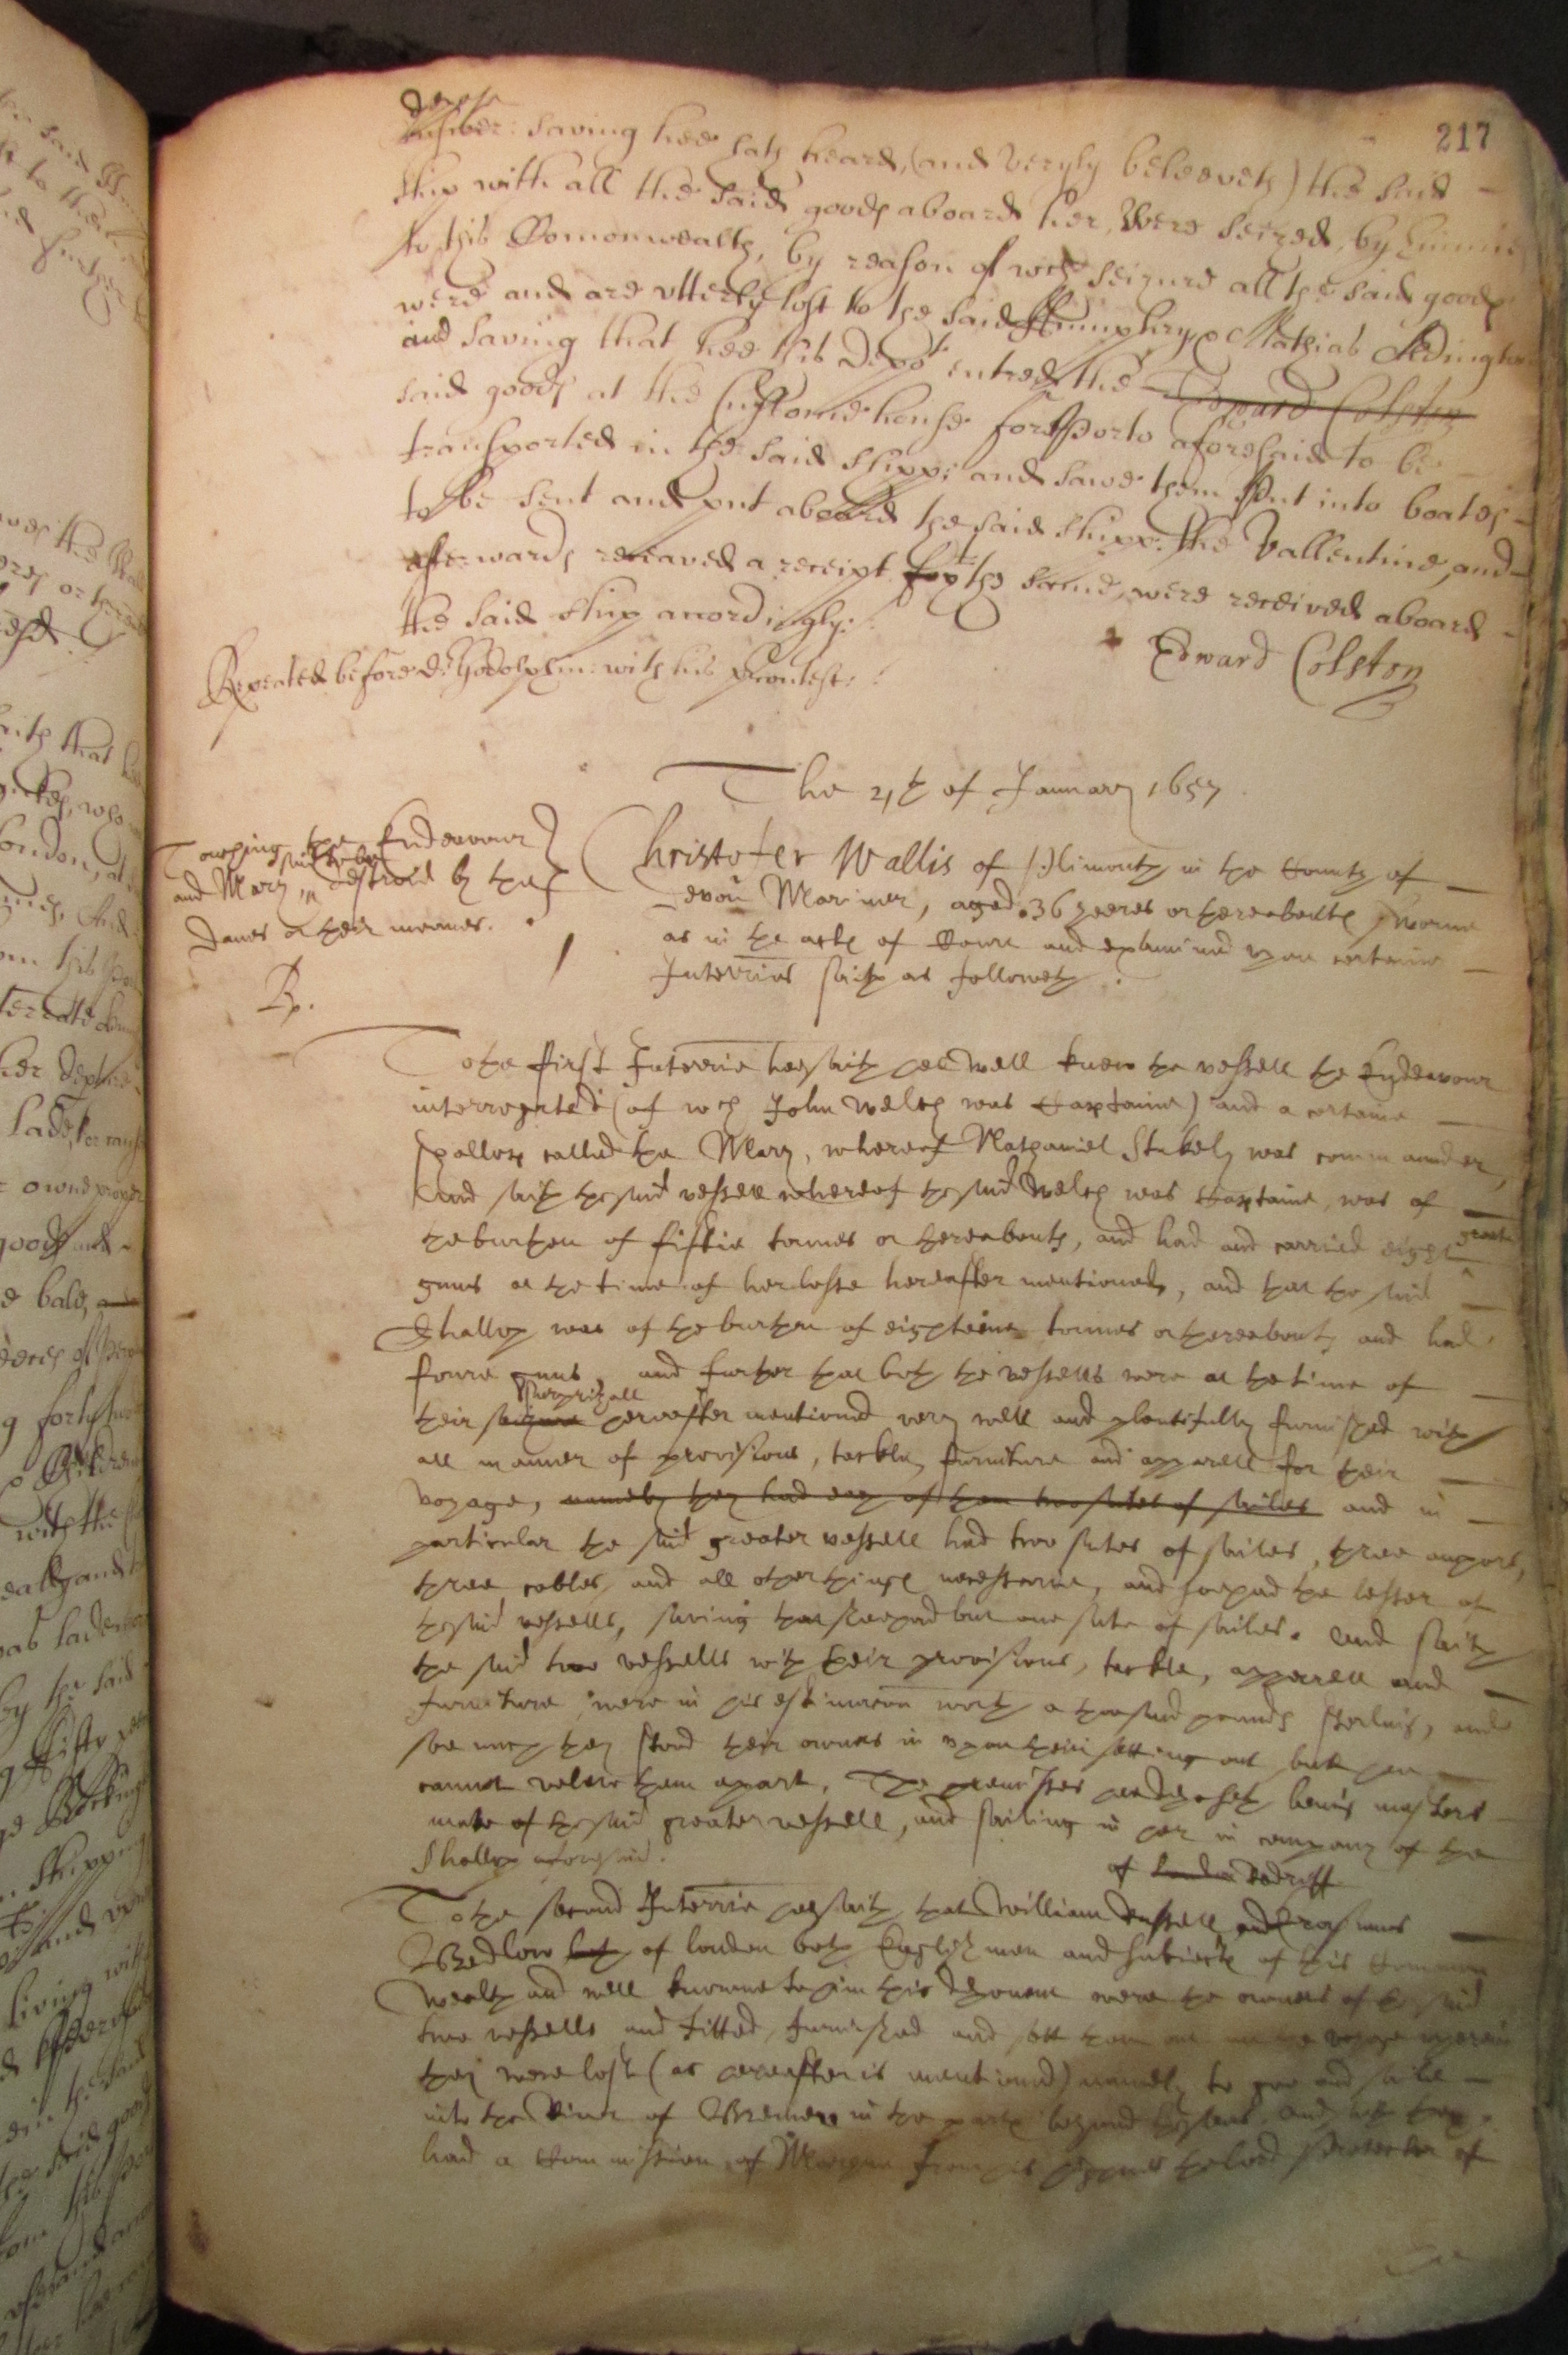 217
depose
Answer: saving hee hath heard, (and veryly beleeveth) the said
ship with all the said goods aboard her, were seized, by Enimies
to this Comonwealth, by reason of wch seizure all the said goods
were and are utterly lost to the said Humphry & Mathias Edington
and saving that hee this Depot entred the Edward Colston
said goods at the Customehouse for Porto aforesaid to be
transported in the said shipp; and sawe them Put into boates
to be sent and put aboard the said shipp. the Vallentine, and
afterwards receaved a receipt for the same, were received aboard
the said ship accordingly:
Edward Colston
Repeated before Dr Godolphin: with his Contest:
The 21th of January 1657.
Touching the Endeavour
and Mary, said to be destroied by the
Danes or their meanes.
Rp.
Christofer Wallis of Plimouth in the County of
Devon Mariner, aged 36 yeeres or thereabouts sworne
as in the acts of Court and examined upon certaine
Interries saith as followeth.
To the first Interrie hee saith hee well knew the vessell the Endeavour
interrogated (of wch John Welch was Captaine) and a certaine
shallop called the Mary, whereof Nathaniel Stukely was commaunder,
And saith the said vessell whereof the said Welch was Captaine, was of
the burthen of fiftie tonnes or thereabouts, and had and carried eight
gunns at the time of her losse hereafter mentioned, and that the said
Shallop was of the burthen of eighteene tonnes or thereabouts and had
foure gunns, and further that both the vessells were at the time of
surprizall
their seizure hereafter mentioned very well and plentifully furnished with
all manner of provisions, tackle, furniture and apparell for their
voyage, namely they had each of them two sutes of sailes and in
particular the said greater vessell had two sutes of sailes, three anchors,
three cables, and all other things necessarie, and soe had the lesser of
the said vessells, saving that shee had but one sute of sailes. And saith
the said two vessells with their provisions, tackle, apparell and
furniture were in his estimacon worth a thousand pounds sterling, and
soe much they stood their owners in upon their setting out but hee
cannot value them apart, The premisses hee deposeth being masters
mate of the said greater vessell, and sailing in her in company of the
Shallop aforesaid.
of London Redriff
To the second Interrie hee saith that William Russell and Erasmus
Bredlow both of London both Englishmen and subiects of this Common
wealth and well knowne to him this deponent were the owners of the said
two vessells and fitted, furnished and sett them out on the voyage wherein
they were lost (as hereafter is mentioned) namely to goe and saile
into the River of Bremen in the parts beyond the seas, and
had a Commission of Marque from his Highnes the Lord Protector of